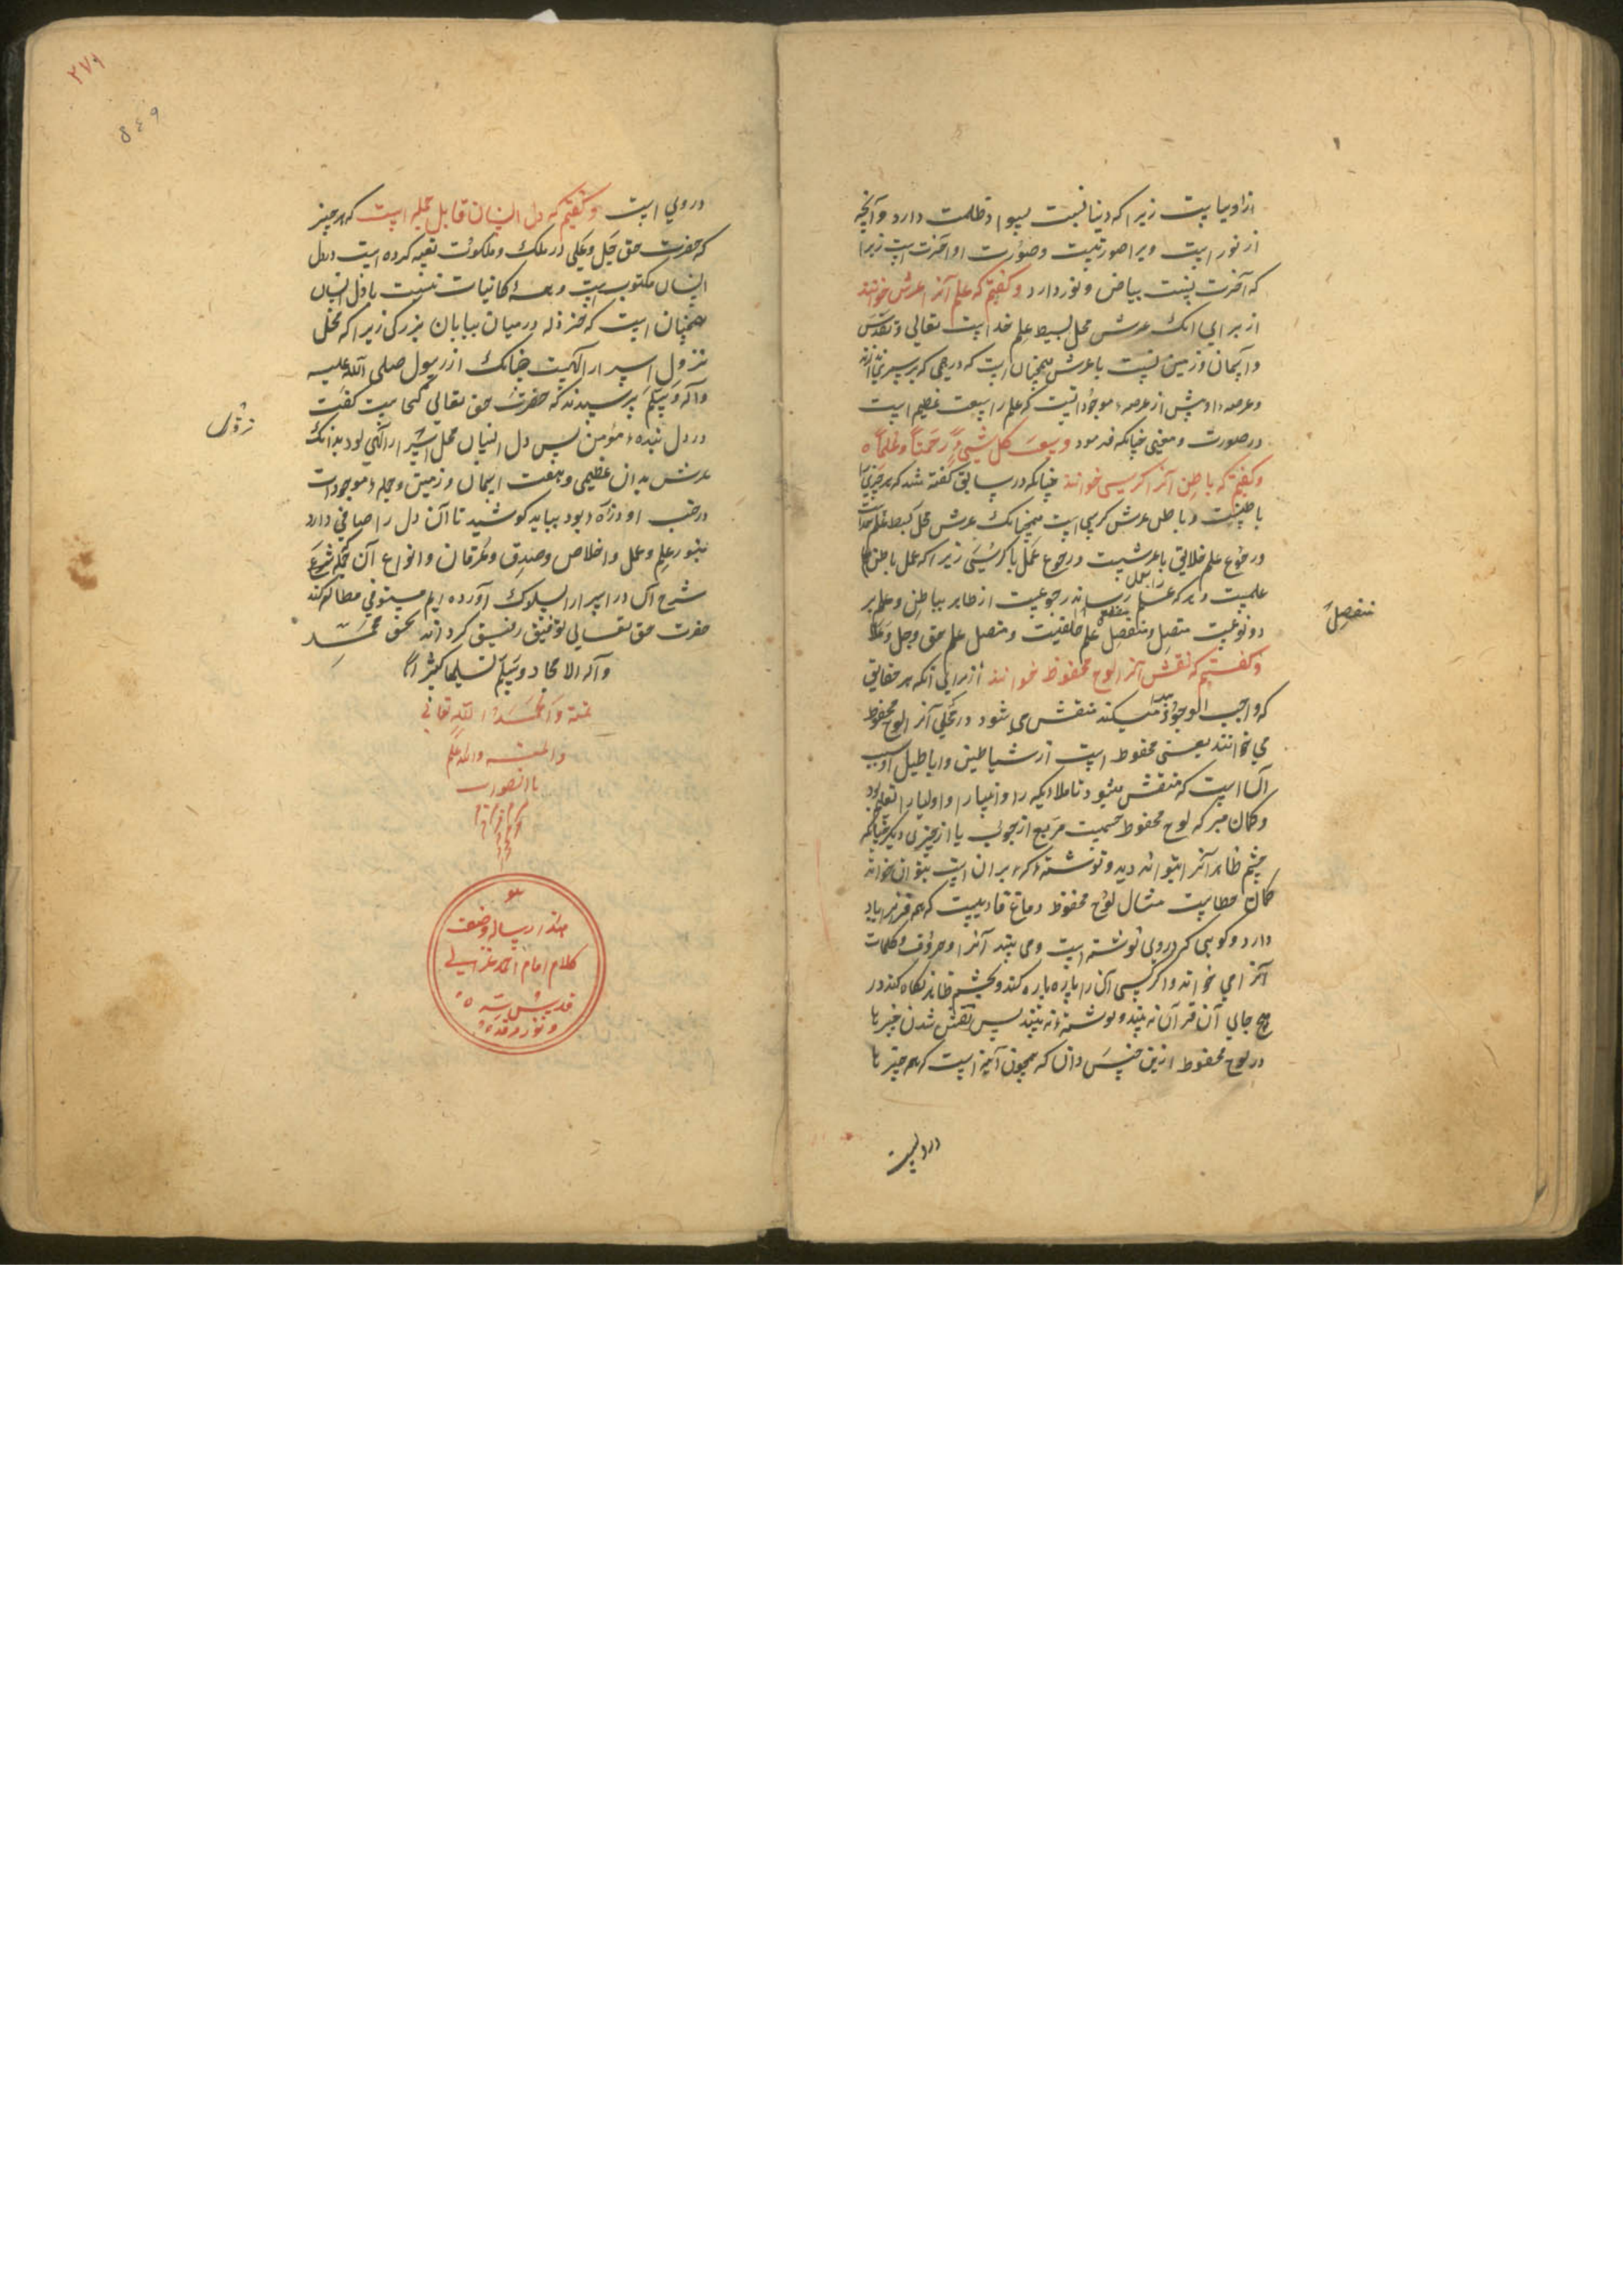 از اوسیاست زیرا که دنیا نسبت بسواد و ظلمت دارد و آنچه
از نور است ویرا صورتیست و صورت او آخرت است زیرا
که آخرت نسبت بیاض و نور دارد و گفتیم که علم آنرا عرش خوانند
از برای آنک عرش محل بسیط علم خداست تعالی و تقدس
و آسمان و زمین نسبت با عرش همچنان است که درهمی که بر سپری اندازند
و عرصهٔ او بیش از عرصهٔ موجوداتست که علم را سعت عظیم است
در صورت و معنی چنانکه فرمود وسعت کل شیء رحمة وعلما
و گفتیم که باطن آنرا کرسی خوانند چنانکه در سابق گفته شد که هر چیزی را
باطنیست و باطن عرش کرسی است همچنانک عرش محل بسط علم خداست
و رجوع علم خلایق با عرشست و رجوع عمل با کرسی زیرا که عمل باطن
علمست و هر که علم را بعمل رساند رجوعیست از ظاهر بباطن و علم بر
دو نوعست متصل و منفصل منفصل علم خلقیست و متصل علم حق و جل و علا
منفصل
و گفتیم که نقش آنرا لوح محفوظ خوانند از برای آنکه هر حقایق
که واجب الوجود پیدا میکند منقش می شود در محلی آنرا لوح محفوظ
می خوانند یعنی محفوظ است از شیاطین و اباطیل و سبب
آن است که منقش میشود تا ملایکه را و انبیا را و اولیا را تعلیم بود
و گمان مبر که لوح محفوظ جسمیست مربع از چوب یا از چیزی دیگر چنانکه
چشم ظاهر آنرا بتواند دید و نوشتهٔ که بر آن است بتوان خواند
گمان خطاست مثال لوح محفوظ دماغ قاریست که هم قرآن یاد
دارد و گویی که در وی نوشته است و می بیند آنرا و حروف و کلمات
آنرا می خواند و اگر کسی آن را پاره پاره کند و بچشم ظاهر نگاه کند در
هیچ جای آن قرآن نه بیند و نوشته نه بیند پس نقش شدن چیزها
در لوح محفوظ ازین جنس دان که همچون آینه است که همه چیزها
در وی است و گفتیم که دل انسان قابل جمله است که هر چیز
که حضرت حق جل و علی در ملک و ملکوت تعبیه کرده است در دل
انسان مکتوب است و همهٔ کائنات نسبت با دل انسان
همچنان است که خردله در میان بیابان بزرگی زیرا که محل
نزول اسرار الهیت چنانک از رسول صلی الله علیه
وآله وسلم پرسیدند که حضرت حق تعالی کجاست گفت
در دل بندهٔ مؤمن پس دل انسان محل اسرار الهی بود بدانک
عرش بدان عظیمی و هفت آسمان و زمین و جمله موجودات
در جنب او ذرهٔ بود بباید کوشید تا آن دل را صافی دارد
بنور علم و عمل و اخلاص و صدق و عرفان و انواع آن
شرح آن در اسرار السلوک آورده ایم مستوفی مطالعه کند
حضرت حق تعالی توفیق رفیق گرداند بحق محمد
وآله الامجاد وسلم تسلیما کثیرا
هو
هذا رساله
کلام امام احمد غزالی
قدس سره
ونور مرقده